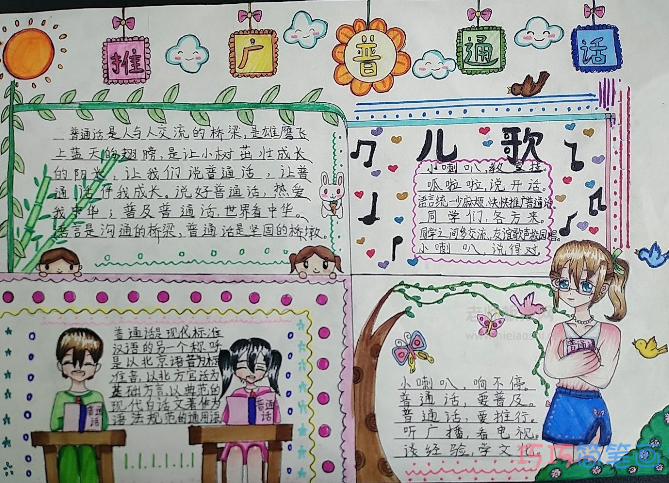 推广普通话
普通话是人与人交流的桥梁,是雄鹰飞
上蓝天的翅膀,是让小树茁壮成长
的阳光,让我们说普通话,让普
通话伴我成长。说好普通话,热爱
我中华;普及普通话,世界看中华。
语言是沟通的桥梁,普通话是坚固的桥
儿歌
小喇叭,教室挂,
呱啦啦,说开话。
语言统一少麻烦,快快推广普通话
同学们,各方来,
同学之间多交流,友谊歌声
小喇叭,说得对,
普通话是现代标准
汉语的另一个称呼
是以北京语音为标
准音,以北方官话为
基础方言,以典范的
现代白话文著作为
语法规范的通用语
普通话
普通话
小喇叭,响不停。
普通话,要普及。
普通话,要推行。
听广播,看电视。
读经验,学文化
巧巧简笔画